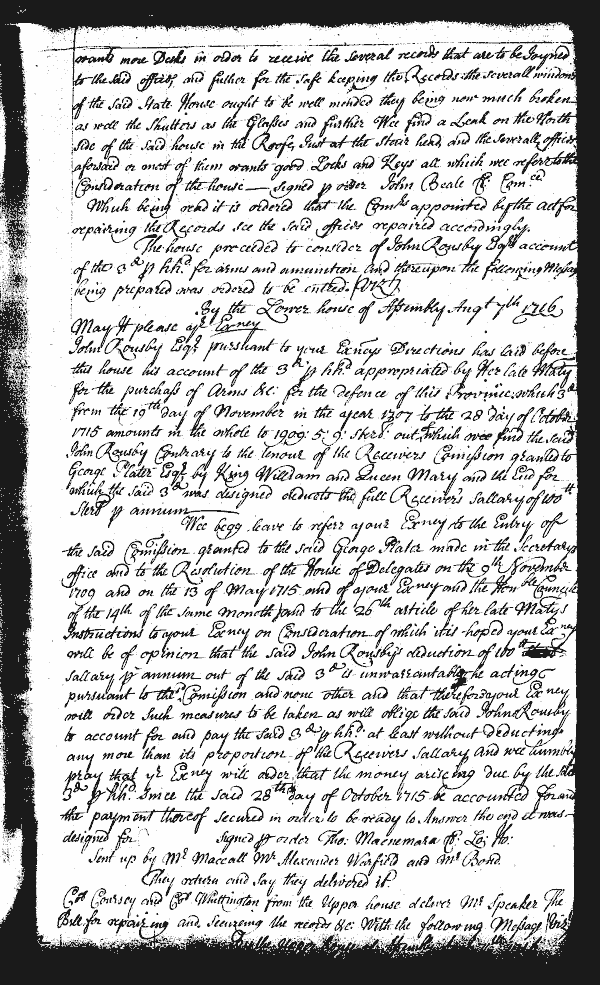 wants more Desks in order to receive the several records that are to be Joyned
to the said offices, and futher for the safe keeping the Records the severall windows
of the said State House ought to be well mended they being now much broken
as well the Shutters as the Glasses and further Wee find a Leak on the North
side of the said house in the Roofe, Just at the Stair head, and the severall offices
aforsaid or most of them wants good Locks and Keys all which wee referr to the
Consideration of the house — signed p order John Beale Cl. Com.ee
Which being read it is ordered that the Comrs appointed by the Act for
repairing the Records see the said offices repaired accordingly.
The house proceeded to consider of John Rousby Esqrs account
of the 3d p hhd. for arms and amunition and thereupon the following Message
being prepared was ordered to be entred. (Vizt)
By the Lower house of Assembly Augt 7th 1716
May It please yr Exncy
John Rousby Esqr. pursuant to your Exncys Directions has laid before
this house his account of the 3d p hhd appropriated by Her late Majty
for the purchass of Arms &c: for the defence of this Province, which 3d
from the 19th day of November in the year 1707 to the 28 day of October
1715 amounts in the whole to 1909: 5: 9: Sterl: out which wee find the said
John Rousby Contrary to the tenour of the Receivers Comission granted to
George Plater Esqr. by King William and Queen Mary and the End for
which the said 3d was designed deducts the full Receivers Sallary of 100th
Sterl p annum
Wee begg leave to referr your Exncy to the Entry of
the said Comission granted to the said George Plater made in the Secretarys
office and to the Resolution of the House of Delegates on the 9th November
1709 and on the 13 of May 1715 and of your Exncy and the Honble Councile
of the 14th of the same month and to the 26th article of her late Majtys
Instructions to your Exncy on Consideration of which it is hoped your Exncy
will be of opinion that the said John Rousbys deduction of 100th
Sallary p annum out of the said 3d is unwarrantable he acting
pursuant to that Comission and none other and that therefore your Exncy
will order such measures to be taken as will oblige the said John Rousby
to account for and pay the said 3d p hhd: at least without deducting
any more than its proportion of the Receivers Sallary And wee humbly
pray that yr Exncy will order that the money ariseing due by the said
3d p hhd. Since the said 28th day of October 1715 be accounted for and
the payment thereof secured in order to be ready to Answer the end it was
designed for signed p order Tho: Macnemara Cl: Lo: Ho:
Sent up by Mr Maccall Mr Alexander Warfield and Mr Bond
They return and say they delivered it.
Col Coursey and Col Whittington from the Upper house deliver Mr Speaker The
Bill for repairing and Secureing the records &c. With the following Message Viz